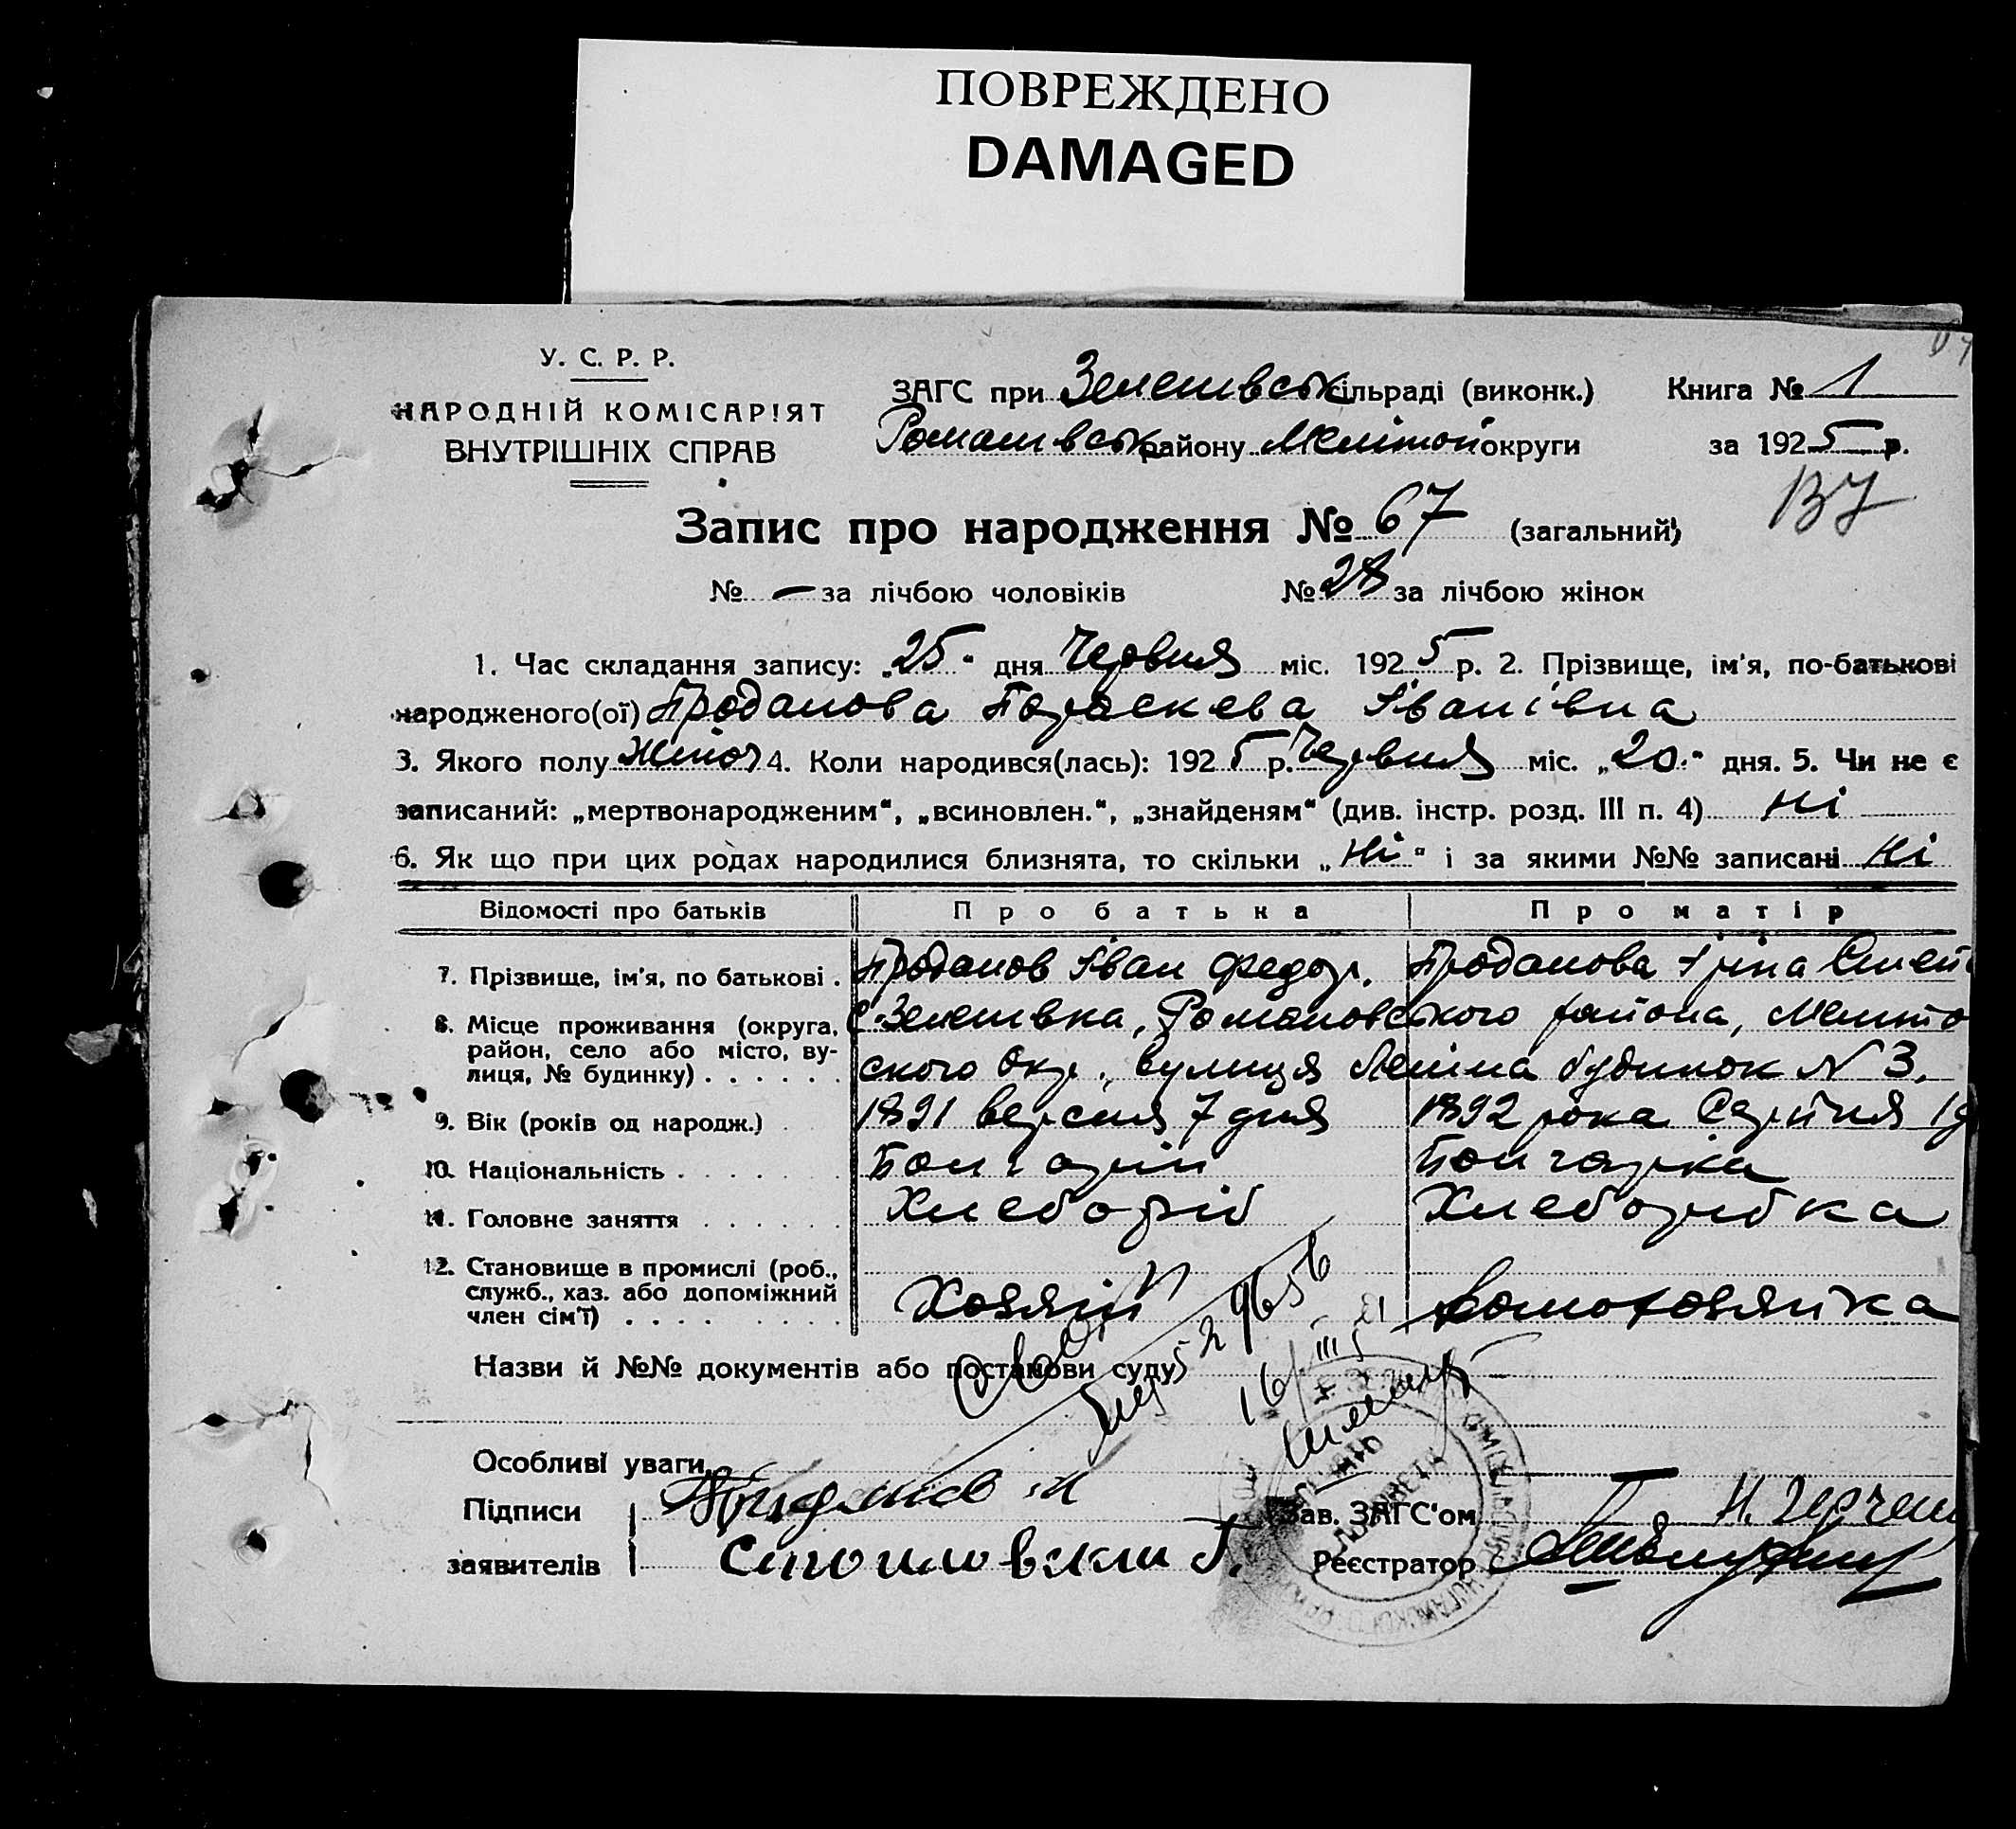 ПОВРЕЖДЕНО
DAMAGED
У. С. Р. Р.
НАРОДНІЙ КОМІСАРІЯТ
ВНУТРІШНІХ СПРАВ
ЗАГС при Зеленивськ сільраді (виконк.) Книга № 1
Романивськ району Мелітоп округи за 1925 р.
Запис про народження № 67 (загальний)
№ — за лічбою чоловіків № 28 за лічбою жінок
1. Час складання запису: „25" дня Червня міс. 1925 р. 2. Прізвище, ім'я, по-батькові
народженого(ої) Проданова Параскева Іванівна
3. Якого полу жіноч 4. Коли народився(лась): 1925 р. Червня міс. „20" дня. 5. Чи не є
записаний: „мертвонародженим", „всиновлен.", „знайденям" (див. інстр. розд. III п. 4) Ні
6. Як що при цих родах народилися близнята, то скільки „Ні" і за якими №№ записані Ні
Відомості про батьків Про батька Про матір
7. Прізвище, ім'я, по батькові . Проданов Іван Федор. Проданова Іріна
8. Місце проживання (округа, район, село або місто, вулиця, № будинку) . . . . . . С. Зеленивка, Романовського района, Мелито
ского Окр., вулиця Леніна будинок N 3.
9. Вік (років од народж.) 1891 версня 7 дня 1892 рока Серпня
10. Національність . . . . Болгарін Болгарка
11. Головне заняття . . . . . . Хлеборіб Хлеборибка
12. Становище в промислі (роб., служб., хаз. або допоміжний член сім'ї) . . . . Хозяїн Домохозяйка
Назви й №№ документів або постанови суду
16/III
Особливі уваги
Підписи Зав. ЗАГС'ом
заявителів Реєстратор